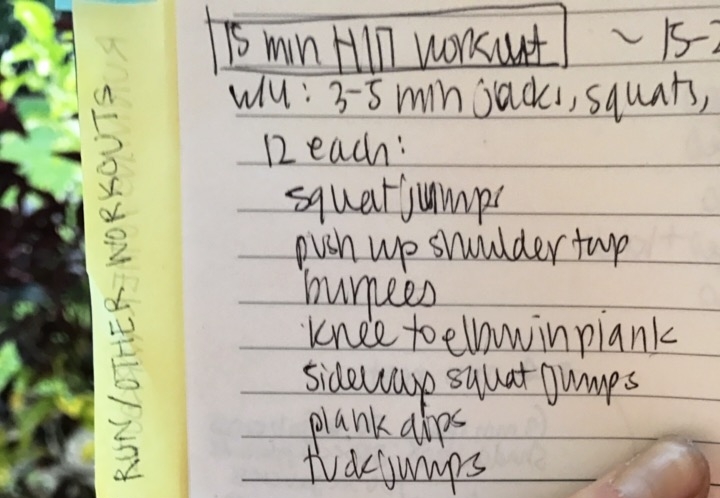 15 min HIIT workout ~ 15-2
w/u: 3-5 min jacks, squats,
12 each:
squat jumps
push up shoulder tap
burpees
knee to elbow in plank
sideways squat jumps
plank dips
tuck jumps
RUN/OTHER WORKOUTS